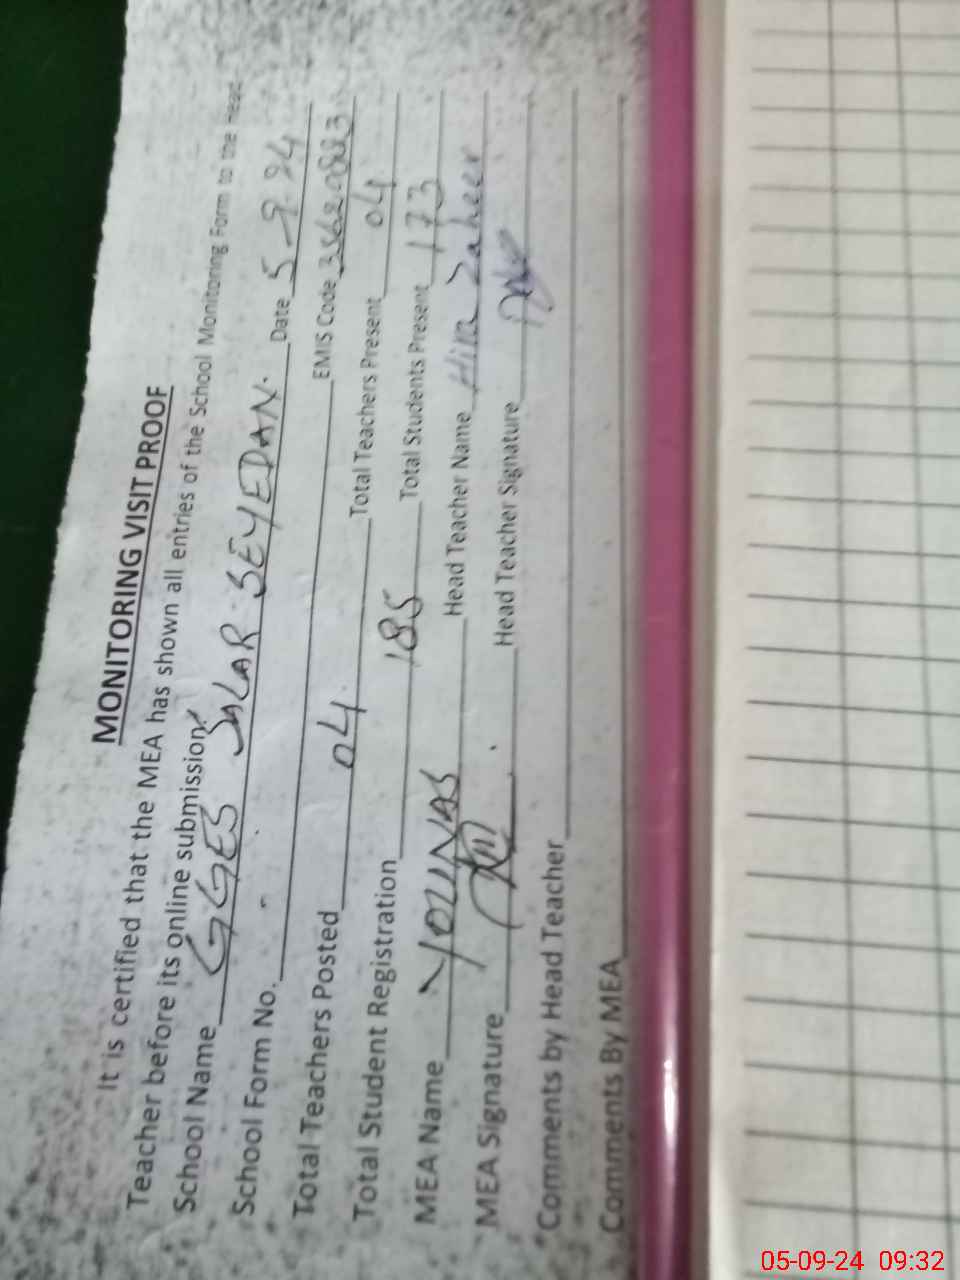 MONITORING VISIT PROOF
It is certified that the MEA has shown all entries of the School Monitoring Form to the Head
Teacher before its online submission.
School Name GGES SALAR SEYEDAN. Date 5-9.24
School Form No. EMIS Code
Total Teachers Posted 04 Total Teachers Present 04
Total Student Registration 185 Total Students Present 173
MEA Name YOUNAS Head Teacher Name Hira Zaheer
MEA Signature Head Teacher Signature
Comments by Head Teacher
Comments By MEA
05-09-24 09:32